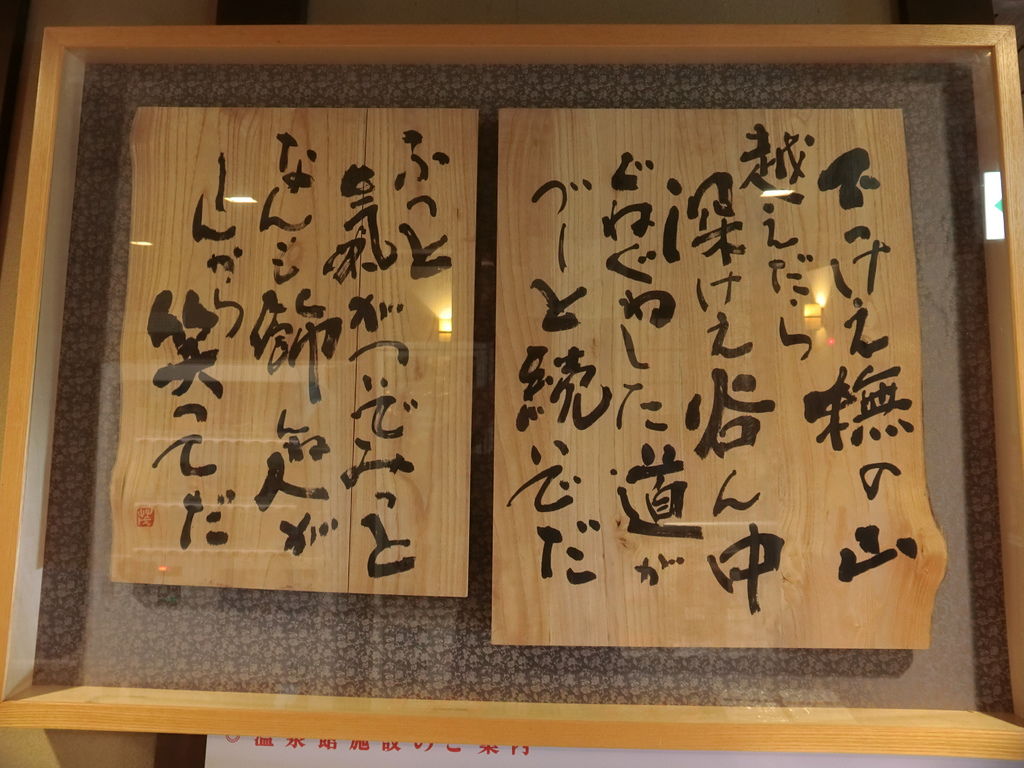 でっけえ橅の山
越えだら
深けえ谷ん中
ぐねぐねした道が
づーと続いでだ
ふっと
氣がついでみっと
なんも飾んねえ人が
しんから
笑ってだ
◎温泉館施設のご案内